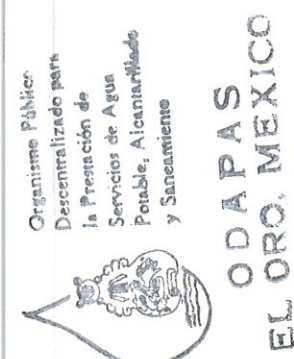 Organismo Público
Descentralizado para
la Prestación de
Servicios de Agua
Potable, Alcantarillado
y Saneamiento
ODAPAS
EL ORO, MEXICO